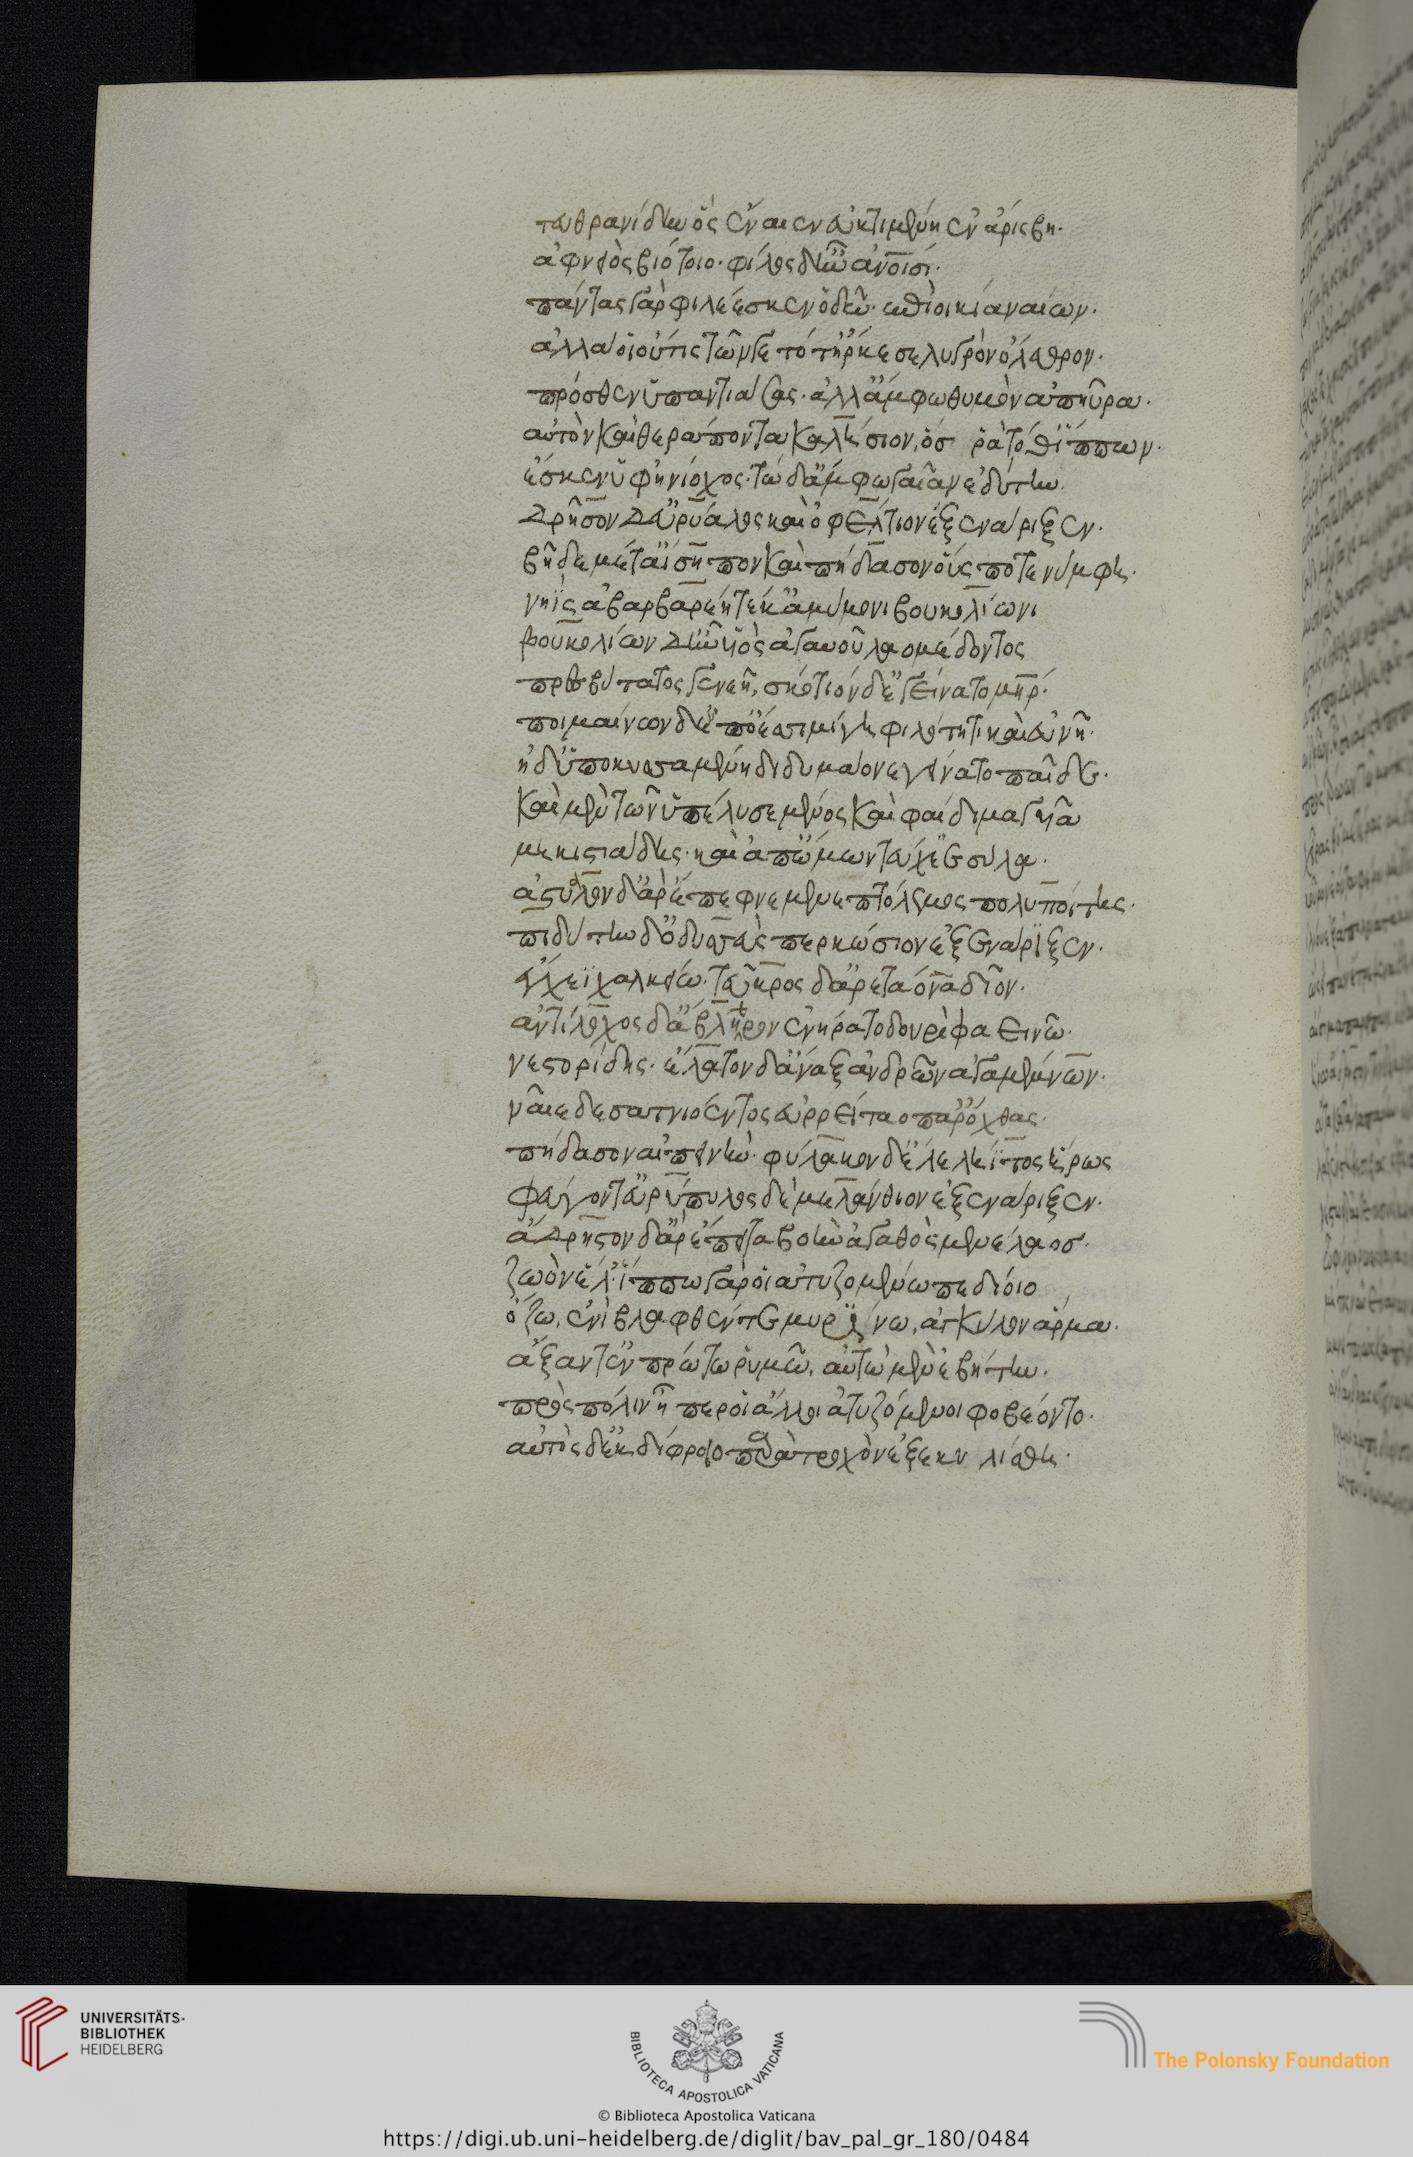 τευθρανίδην ὃς ἔναιεν ἐυκτιμένη ἐν ἀρίσβη·
ἀφνειὸς βιότοιο· φίλος δ' ἦν ἀνοισι·
πάντας γὰρ φιλέεσκεν ὁδῶ ἐπι οἰκία ναίων·
ἀλλά οἱ οὔτις τῶν γε τότ' ἤρκεσε λυγρὸν ὄλεθρον·
πρόσθεν ὑπαντιάσας· ἀλλ' ἄμφω θυμὸν ἀπηύρα·
αὐτὸν καὶ θεράποντα καλήσιον, ὅς ῥα τόθ' ἵππων·
ἔσκεν ὑφηνίοχος· τὼ δ' ἄμφω γαῖαν ἐδύτην
Δρῆσον δ' εὐρύαλος καὶ ὀφέλτιον ἐξενάριξεν·
βῆ δὲ μετ' αἴσηπον καὶ πήδασον οὕς ποτε νύμφη·
νηῒς ἀβαρβαρέη τέκ' ἀμύμονι βουκολίωνι
βουκολίων δ' ἦν υἱὸς ἀγαυοῦ λαομέδοντος
πρεσβύτατος γενεῆ, σκότιον δέ ἑ γείνατο μηρ·
ποιμαίνων δ' ἐπ' ὄεσσι μίγη φιλότητι καὶ εὐνῆ·
ἡ δ' ὑποκυσσαμένη διδυμάονε γείνατο παῖδε·
καὶ μὲν τῶν ὑπέλυσε μένος καὶ φαίδιμα γυῖα
μηκιστιάδης· καὶ ἀπ' ὤμων τεύχε' ἐσύλα·
ἀστύαλον δ' ἄρ' ἔπεφνε μενεπτόλεμος πολυποίτης·
πιδύτην δ' ὀδυσσεὺς περκώσιον ἐξενάριξεν·
ἔγχεϊ χαλκείω· τεῦκρος δ' ἀρετάονα δῖον·
ἀντίλοχος δ' ἄβληρον ἐνήρατο δουρὶ φαεινῶ·
νεστορίδης· ἔλατον δ' ἄναξ ἀνδρῶν ἀγαμέμνων·
ναῖε δὲ σατνιόεντος ἐυρρείταο παρ' ὄχθας·
πήδασον αἰπεινήν· φύλακον δ' ἕλε λήϊτος ἥρως
φεύγοντ' εὐρύπυλος δὲ μελάνθιον ἐξενάριξεν·
ἄδρηστον δ' ἄρ' ἔπειτα βοὴν ἀγαθὸς μενέλαος·
ζωὸν ἕλ' ἵππω γάρ οἱ ἀτυζομένω πεδίοιο
ὄζω, ἐνὶ βλαφθέντε μυρικίνω, ἀγκύλον ἅρμα·
ἄξαντ' ἐν πρώτω ῥυμῶ, αὐτὼ μὲν ἐβήτην·
πρὸς πόλιν ἧ περ οἱ ἄλλοι ἀτυζόμενοι φοβέοντο·
αὐτὸς δ' ἐκ δίφροιο παρὰ τροχὸν ἐξεκυλίσθη·
UNIVERSITÄTS-
BIBLIOTHEK
HEIDELBERG
BIBLIOTECA APOSTOLICA VATICANA
The Polonsky Foundation
© Biblioteca Apostolica Vaticana
https://digi.ub.uni-heidelberg.de/diglit/bav_pal_gr_180/0484